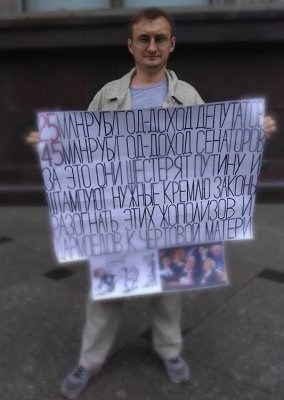 25 МЛНРУБ/ГОД-ДОХОД ДЕПУТАТОВ
45 МЛНРУБ/ГОД-ДОХОД СЕНАТОРОВ
ЗА ЭТО ОНИ ШЕСТЕРЯТ ПУТИНУ И
ШТАМПУЮТ НУЖНЫЕ КРЕМЛЮ ЗАКОНЫ
РАЗОГНАТЬ ЭТИХ ЖОПОЛИЗОВ И
ДАРМОЕДОВ К ЧЕРТОВОЙ МАТЕРИ